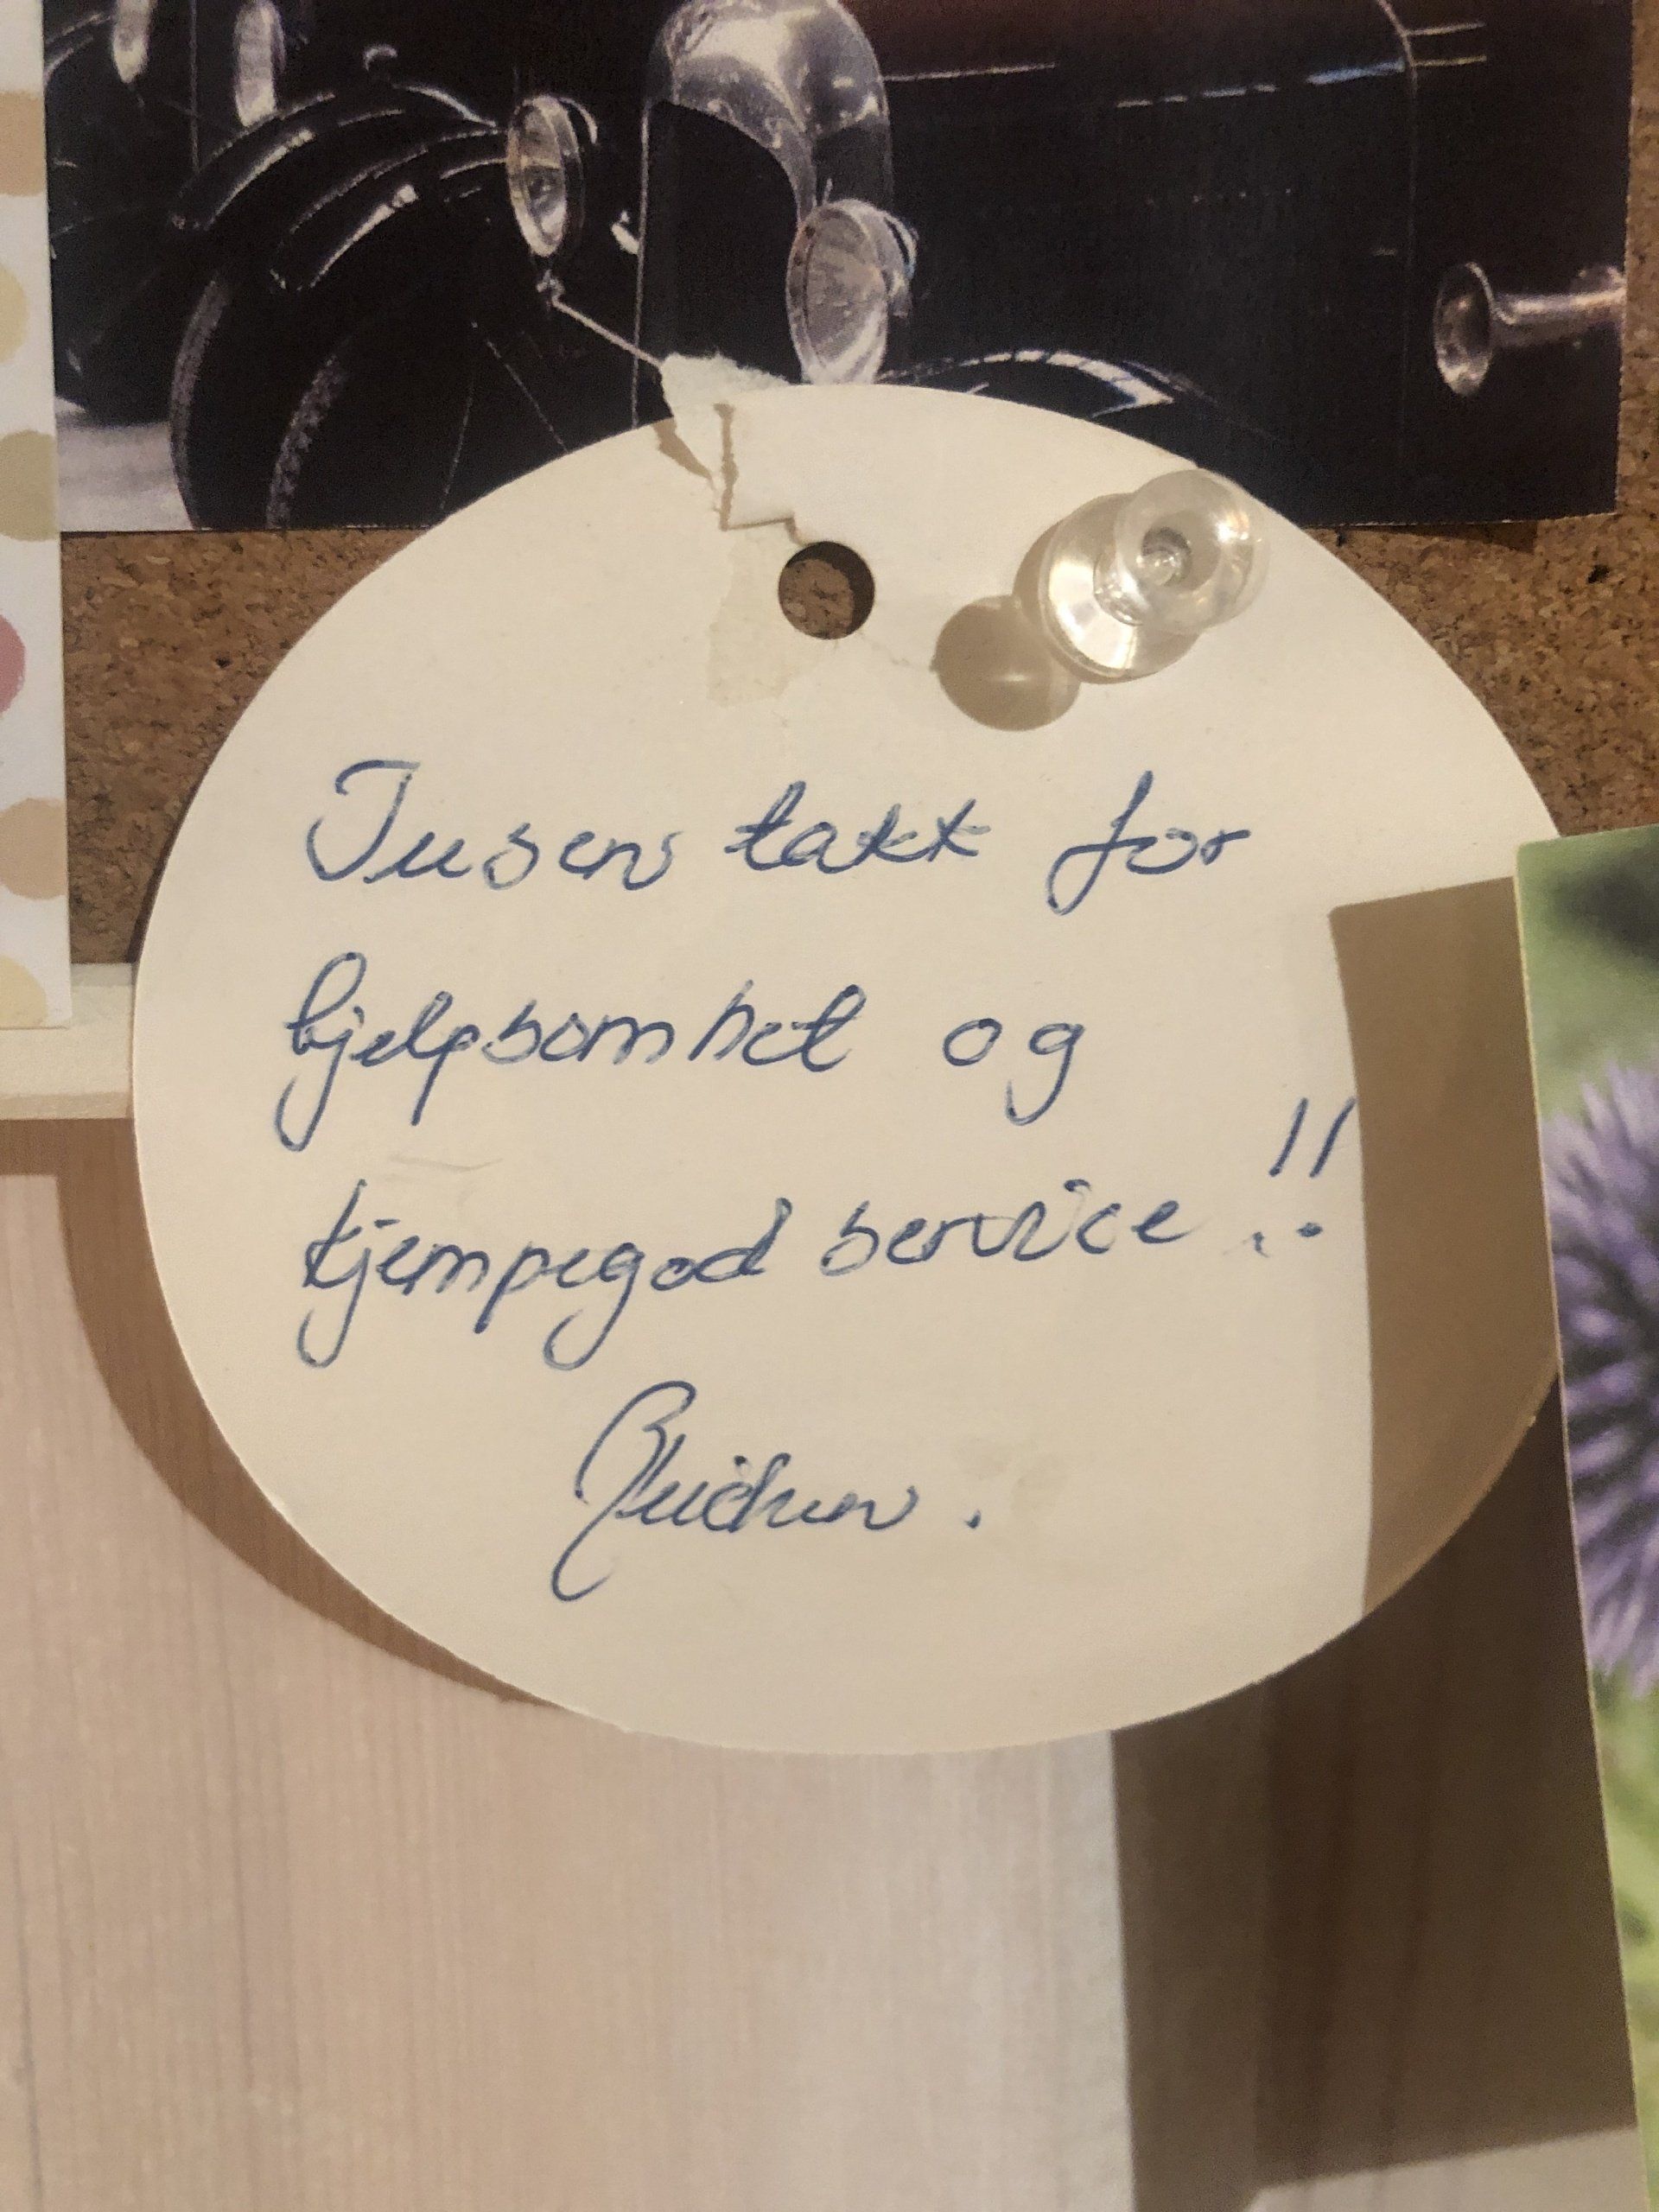 Tusen takk for
hjelpsomhet og
kjempegod service!!